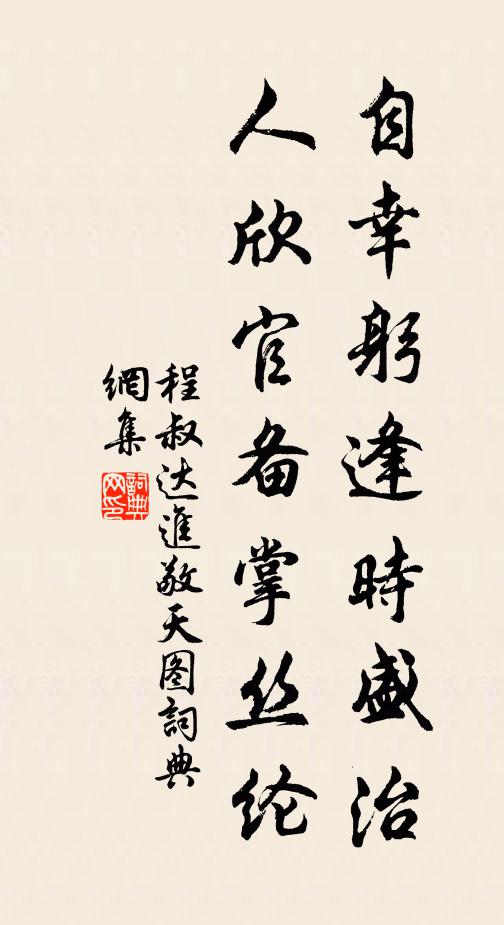 自幸躬逢時盛治
人欣官备掌丝纶
程叔达進敬天图詞典
網集
詞典
网印